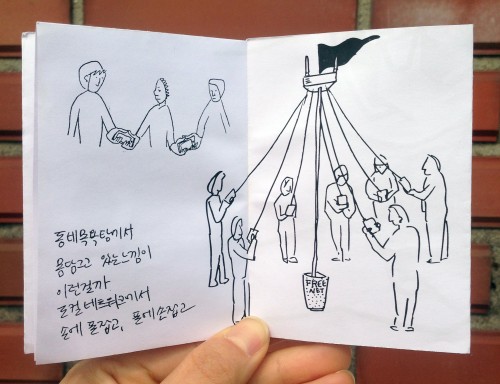 동네목욕탕에서
몸담그고 있는느낌이
이런걸까
로컬네트워크에서
손에 폰잡고, 폰에손잡고
FREE
NET